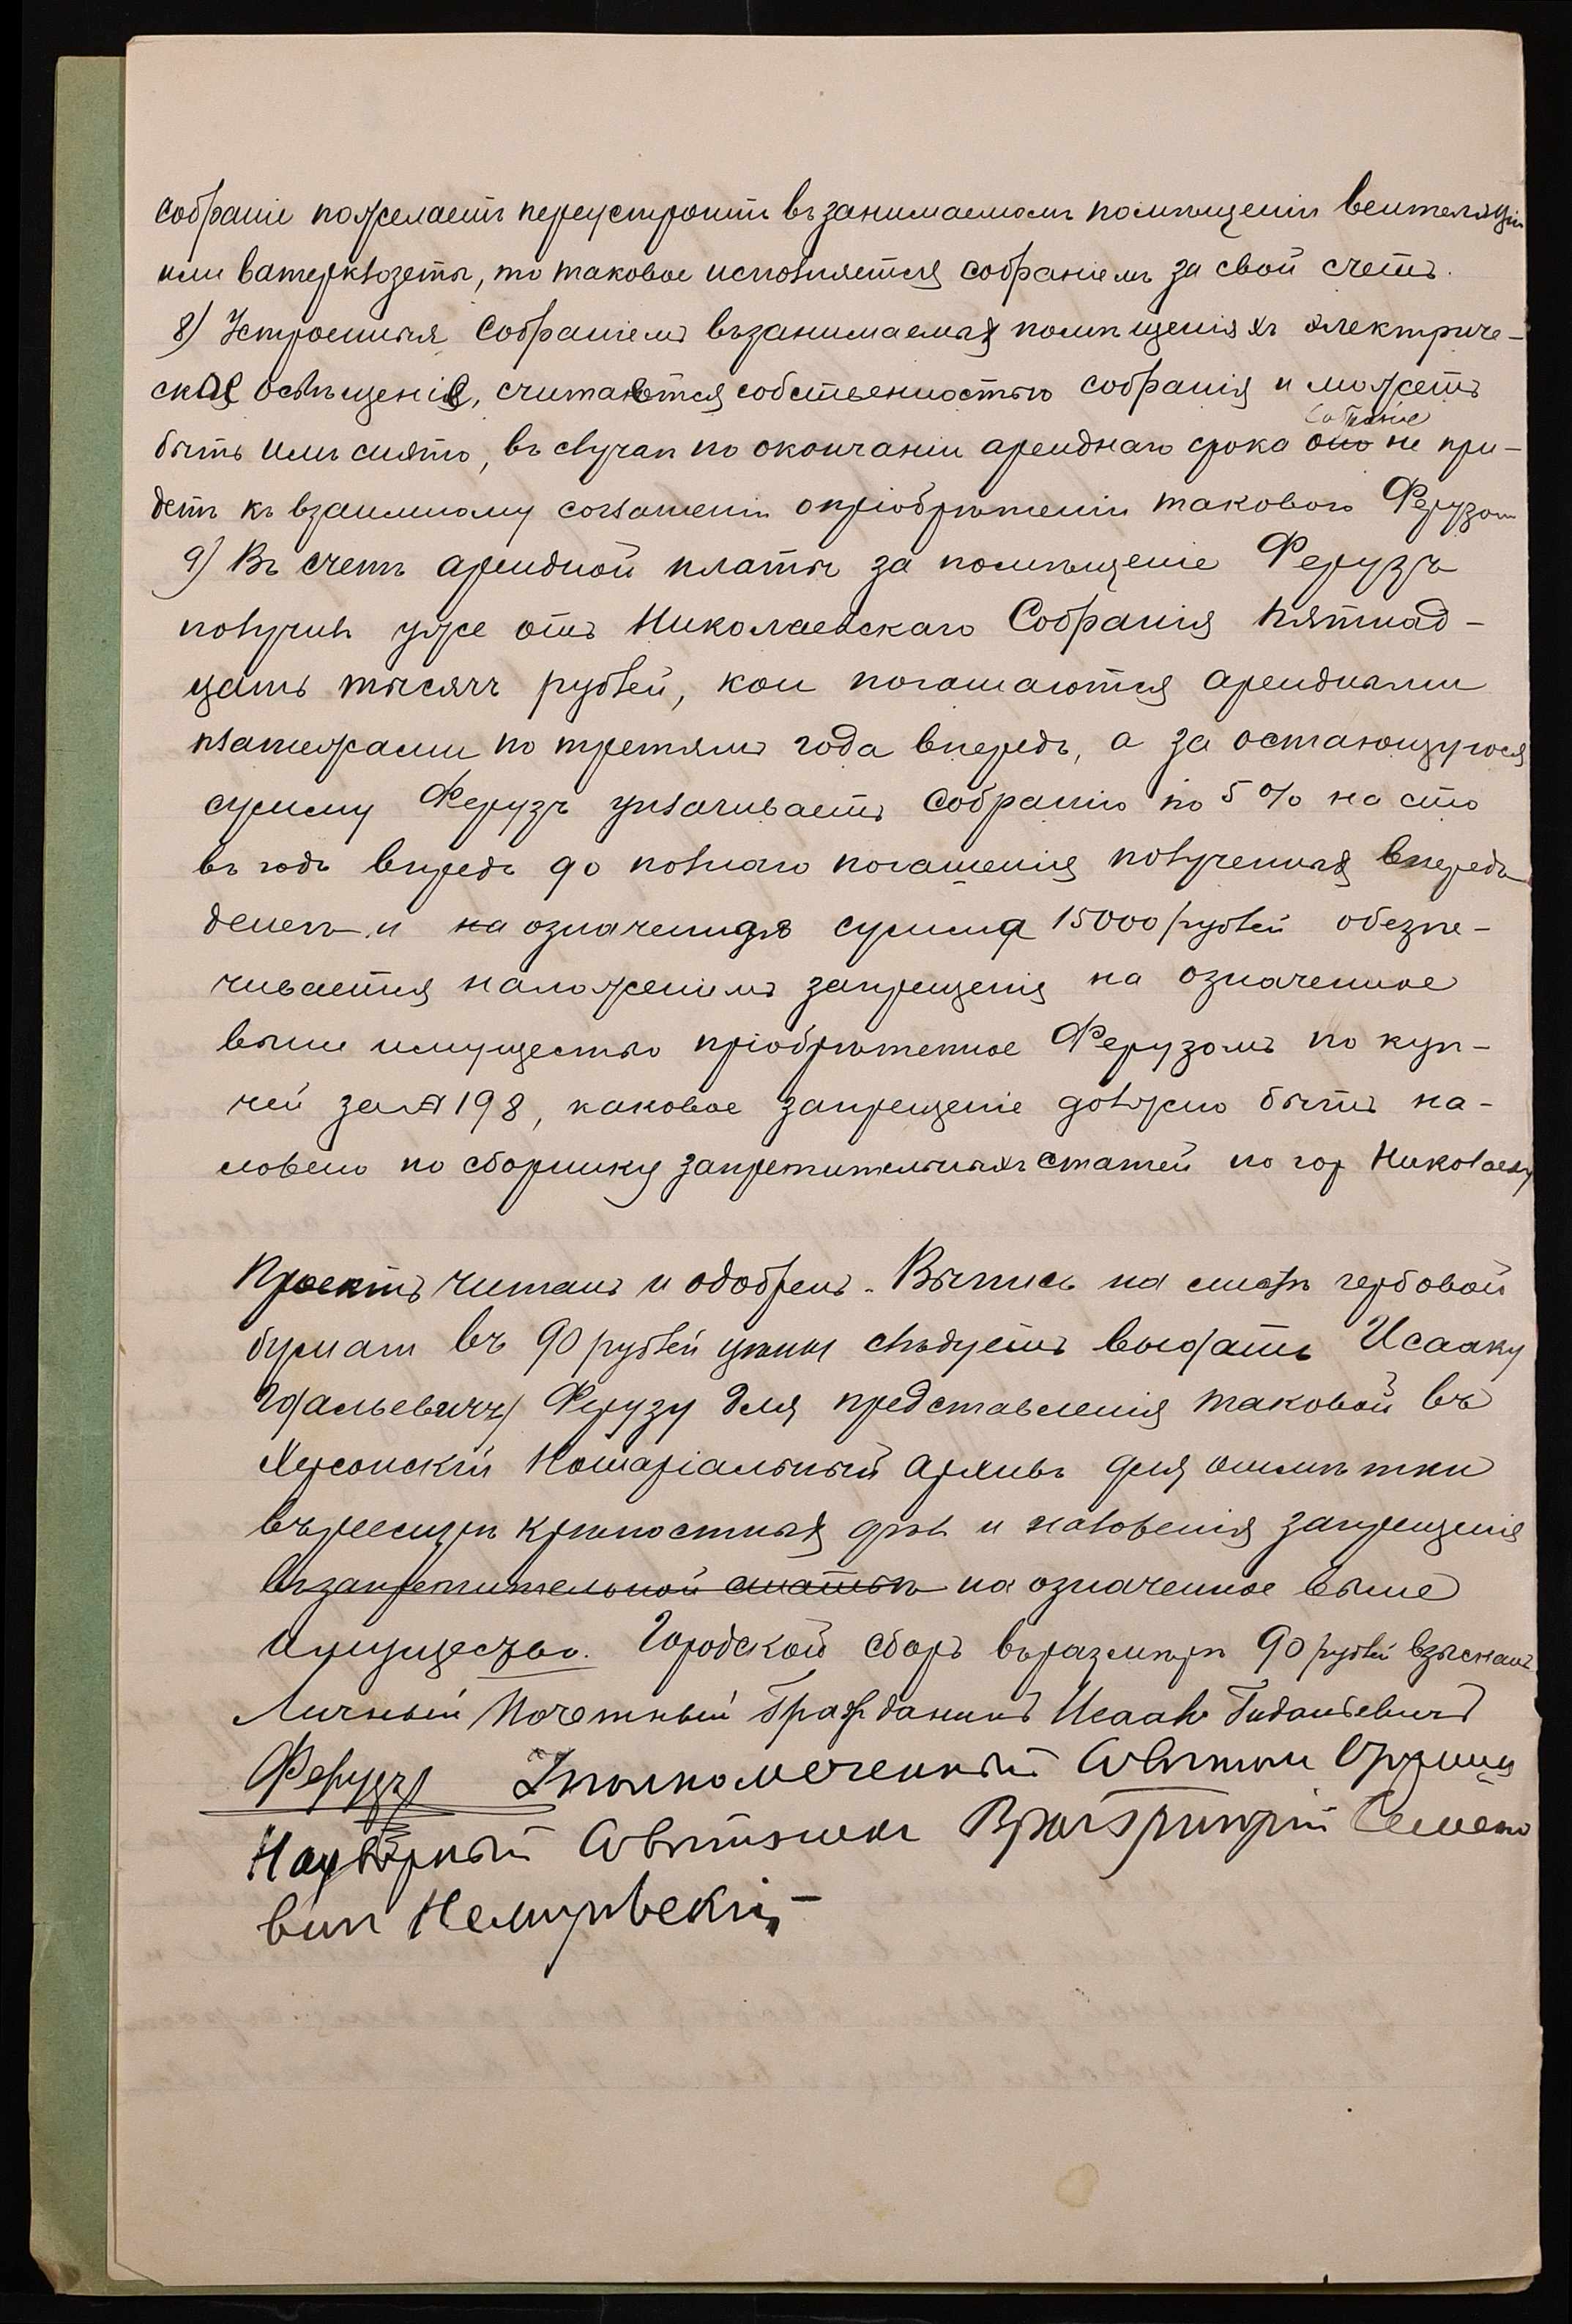 собраніе пожелаетъ переустроить въ занимаемомъ помѣщеніи вентиляціи
или ватерклозеты, то таковое исполняется собраніемъ за свой счетъ.
8) Устроенныя Собраніемъ въ занимаемыхъ помѣщеніяхъ электриче-
ская освѣщенія, считаются собственностью собранія и можетъ
собраніе
быть имъ снято, въ случаѣ по окончаніи аренднаго срока оно не при-
детъ къ взаимному соглашенію о пріобрѣтеніи таковаго Ферузомъ
9) Въ счетъ арендной платы за помѣщеніе Ферузъ
получилъ уже отъ Николаевскаго Собранія пятнад-
цать тысячъ рублей, кои погашаются арендными
платежами по третямъ года впередъ, а за остающуюся
сумму Ферузъ уплачиваетъ Собранію по 5% на сто
въ годъ впредь до полнаго погашенія полученныхъ впередъ
денегъ и на означенная сумма 15000 рублей обезпе-
чивается наложеніемъ запрещенія на означенное
выше имущество пріобрѣтенное Ферузомъ по куп-
чей за № 198, каковое запрещеніе должно быть на-
ложено по сборнику запретительныхъ статей по гор Николаеву
Проектъ читанъ и одобренъ. Выпись на листѣ гербовой
бумаги въ 90 рублей цѣны слѣдуетъ выдать Исааку
Ферузу для представленія таковой въ
Херсонскій Нотаріальный Архивъ для отмѣтки
въ реестрѣ крѣпостныхъ дѣлъ и наложенія запрещенія
въ запретительной статьѣ на означенное выше
имущество. Городской сборъ въ размѣрѣ 90 рублей взысканъ
Личный Почетный Гражданинъ Исаакъ
Ферузъ Уполномоченный
Надворный Совѣтникъ Семено
вичъ